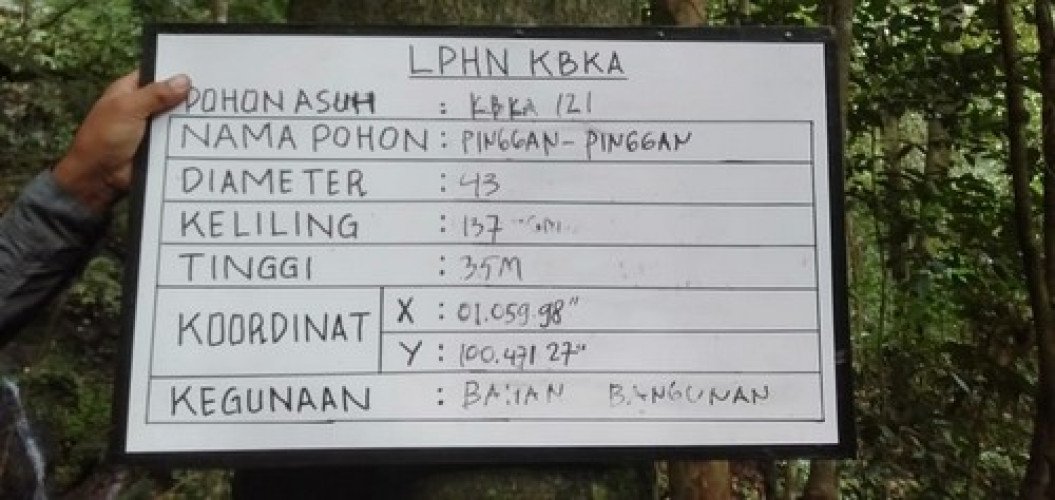 LPHN KBKA
POHON ASUH : KBKA 121
NAMA POHON : PINGGAN-PINGGAN
DIAMETER : 43
KELILING : 137 cm
TINGGI : 35M
KOORDINAT X : 01.059.98"
Y : 100.471 27"
KEGUNAAN : BAHAN BANGUNAN